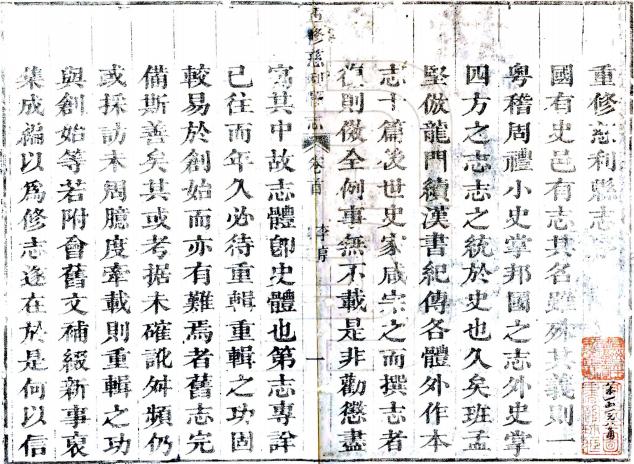 重修慈利縣志
國有史邑有志其名雖殊其義則一
粵稽周禮小史掌邦國之志外史掌
四方之志志之統於史也久矣班孟
堅倣龍門續漢書紀傳各體外作本
志十篇後世史家咸宗之而撰志者
復則倣全例事無不載是非勸懲盡
重修慈利縣志 卷首 序 一
寓其中故志體卽史體也第志專詮
已往而年久必待重輯重輯之功固
較易於創始而亦有難焉者舊志完
備斯善矣其或考据未確訛舛頻仍
或採訪未周臆度牽載則重輯之功
與創始等若附會舊文補綴新事裒
集成編以爲修志遂在於是何以信